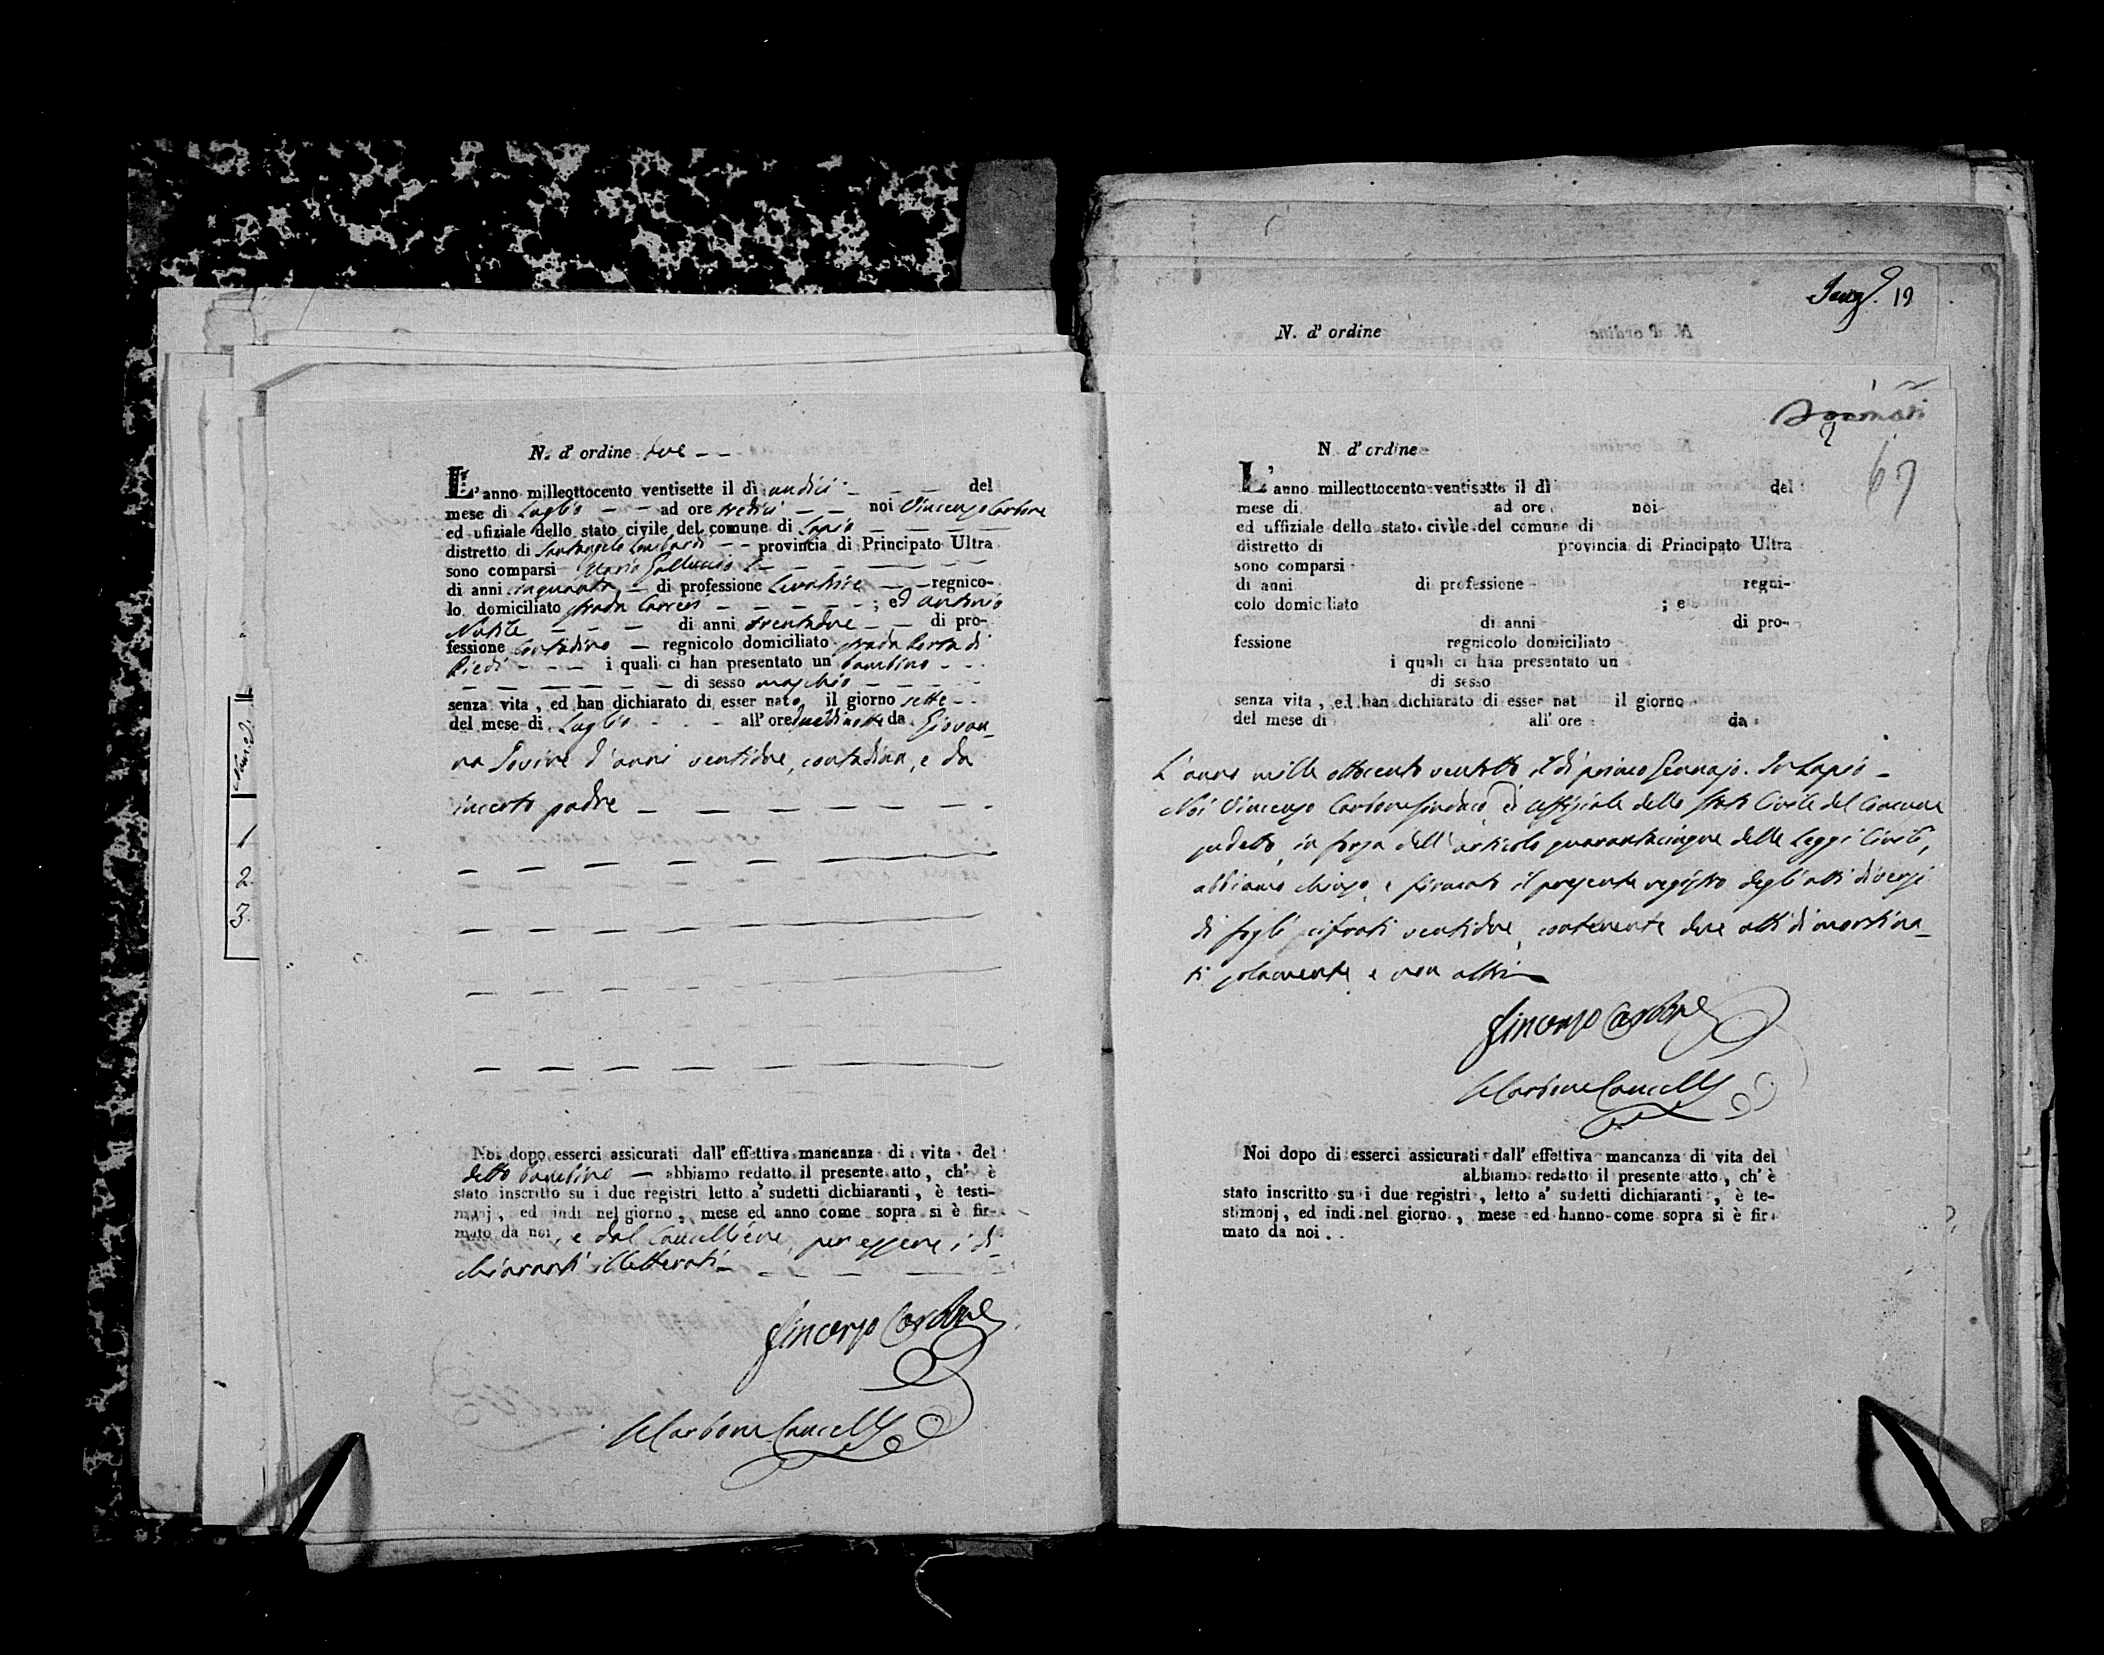 N. d' ordine due
L' anno milleottocento ventisette il dì undici del
mese di Luglio ad ore tredici noi Vincenzo Carbone
ed ufiziale dello stato civile del comune di Lapio
distretto di Santangelo Lombardi provincia di Principato Ultra
sono comparsi Maria Galluccio
di anni cinquanta di professione Levatrice regnico-
lo domiciliato strada Carceri ; ed Antonio
di anni trentadue di pro-
fessione Contadino regnicolo domiciliato strada Porta di
Piedi i quali ci han presentato un bambino
di sesso maschio
senza vita, ed han dichiarato di esser nato il giorno sette
del mese di Luglio all' ore da Giovan-
na Iovine d'anni ventidue, contadina, e da
incerto padre
Noi dopo esserci assicurati dall' effettiva mancanza di vita del
detto bambino abbiamo redatto il presente atto, ch' è
stato inscritto su i due registri letto a' sudetti dichiaranti, è testi-
monj, ed indi nel giorno, mese ed anno come sopra si è fir-
mato da noi, e dal Cancelliere, per essere i di-
chiaranti illetterati
Vincenzo Carbone
Carbone Cancell.
1
2
3.
19
N. d' ordine
67
N. d' ordine
L' anno milleottocento ventisette il dì del
mese di ad ore noi
ed uffiziale dello stato civile del comune di
distretto di provincia di Principato Ultra
sono comparsi
di anni di professione regni-
colo domiciliato ; e
di anni di pro-
fessione regnicolo domiciliato
i quali ci han presentato un
di sesso
senza vita, ed han dichiarato di esser nat il giorno
del mese di all' ore da
L'anno mille ottocento ventotto il dì primo Gennajo. In Lapio
Noi Vincenzo Carbone Sindaco, ed Uffiziale dello Stato Civile del Comune
sudetto, in forza dell'articolo quarantacinque delle Leggi Civili,
abbiamo chiuso, e firmato il presente registro degli atti diversi
di fogli cifrati ventidue, contenente due atti di mortina-
ti solamente e non altri
Vincenzo Carbone
Carbone Cancell.
Noi dopo di esserci assicurati dall' effettiva mancanza di vita del
abbiamo redatto il presente atto, ch' è
stato inscritto su i due registri, letto a' sudetti dichiaranti, è te-
stimonj, ed indi nel giorno, mese ed hanno come sopra si è fir-
mato da noi.